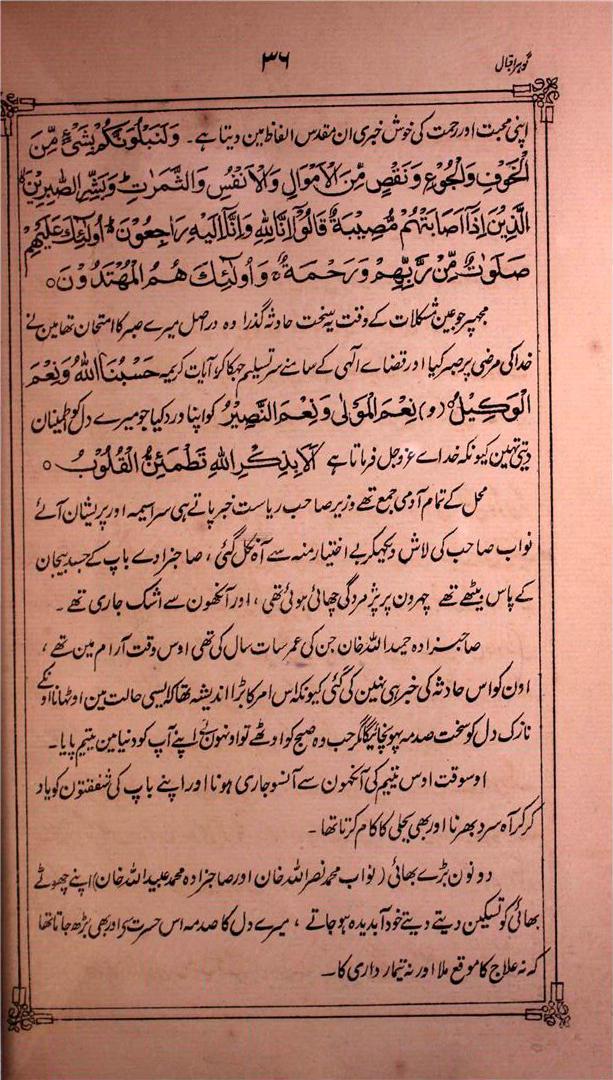 گوہر اقبال
۳۶
اپنی محبت اور رحمت کی خوش خبری ان مقدس الفاظ مین دیتا ہے۔ وَلَنَبْلُوَنَّکُمْ بِشَیْءٍ مِّنَ
الْخَوْفِ وَالْجُوْعِ وَنَقْصٍ مِّنَ الْاَمْوَالِ وَالْاَنْفُسِ وَالثَّمَرٰتِ وَبَشِّرِ الصّٰبِرِیْنَ
الَّذِیْنَ اِذَا اَصَابَتْہُمْ مُّصِیْبَۃٌ قَالُوْا اِنَّا لِلہِ وَاِنَّا اِلَیْہِ رَاجِعُوْنَ اُولٰٓئِکَ عَلَیْہِمْ
صَلَوٰتٌ مِّنْ رَّبِّہِمْ وَرَحْمَۃٌ وَاُولٰٓئِکَ ہُمُ الْمُہْتَدُوْنَ ○
مجھپر جو عین مشکلات کے وقت یہ سخت حادثہ گذرا وہ دراصل میرے صبر کا امتحان تھا مین نے
خدا کی مرضی پر صبر کیا اور قضاے الٰہی کے سامنے سر تسلیم جھکا کر آیات کریمہ حَسْبُنَا اللہُ وَنِعْمَ
الْوَکِیْلُ (و) نِعْمَ الْمَوْلٰی وَنِعْمَ النَّصِیْرُ کو اپنا ورد کیا جو میرے دل کو اطمینان
دیتی تہین کیونکہ خداے عزوجل فرماتا ہے اَلَا بِذِکْرِ اللہِ تَطْمَئِنُّ الْقُلُوْبُ ○
محل کے تمام آدمی جمع تھے وزیر صاحب ریاست خبر پاتے ہی سراسیمہ اور پریشان آئے
نواب صاحب کی لاش دیکھکر بے اختیار منہ سے آہ نکل گئی ، صاحبزادے باپ کے جسد بیجان
کے پاس بیٹھے تھے چہرون پر پژمردگی چھائی ہوئی تھی ، اور آنکھون سے اشک جاری تھے ۔
صاحبزادہ حمید اللہ خان جن کی عمر سات سال کی تھی اوس وقت آرام مین تھے ،
اون کو اس حادثہ کی خبر ہی نہین کی گئی کیونکہ اس امر کا بڑا اندیشہ تھا کہ ایسی حالت مین اوٹھانا اونکے
نازک دل کو سخت صدمہ پہونچائیگا مگر جب وہ صبح کو اوٹھے تو اونہون نے اپنے آپ کو دنیا مین یتیم پایا ۔
اوسوقت اوس یتیم کی آنکھون سے آنسو جاری ہونا اور اپنے باپ کی شفقتون کو یاد
کر کر آہ سرد بھرنا اور بھی بجلی کا کام کرتا تھا ۔
دونون بڑے بھائی (نواب محمد نصر اللہ خان اور صاحبزادہ محمد عبید اللہ خان) اپنے چھوٹے
بھائی کو تسکین دیتے دیتے خود آبدیدہ ہو جاتے ، میرے دل کا صدمہ اس حسرت سے اور بھی بڑھ جاتا تھا
کہ نہ علاج کا موقع ملا اور نہ تیمارداری کا ۔